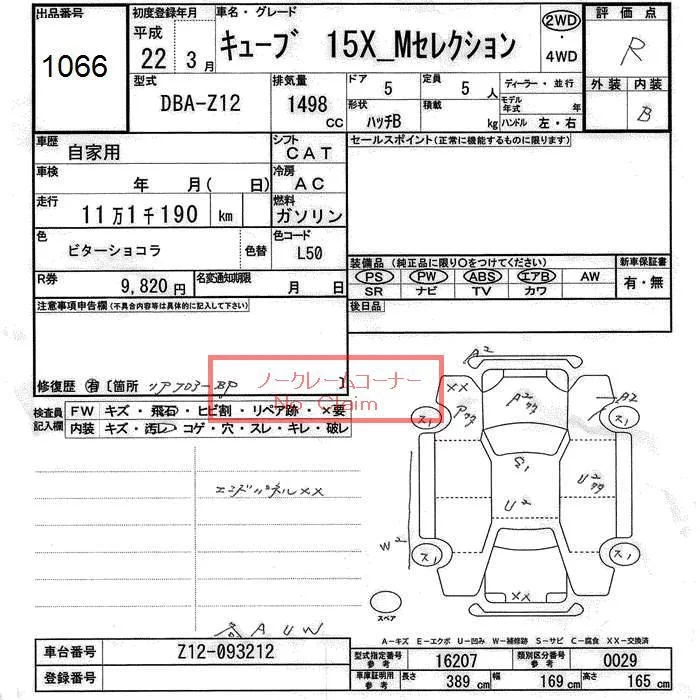 出品番号 初度登録年月 車名・グレード 評価点
1066 平成 22 年 3 月 キューブ 15X_Mセレクション 2WD ・ 4WD R
型式 DBA-Z12 排気量 1498 CC ドア 5 定員 5 人 ディーラー・並行 外装 内装
形状 ハッチB 積載 kg モデル年式 年 ハンドル 左・右 B
車歴 自家用 シフト CAT セールスポイント(正常に機能するものに限ります)
車検 年 月( 日) 冷房 AC
走行 11万1千190 km 燃料 ガソリン
色 ビターショコラ 色替 色コード L50
装備品 (純正品に限り○をつけてください) 新車保証書
PS PW ABS エアB AW 有・無
SR ナビ TV カワ
R券 9,820 円 名変通知期限 月 日 後日品
注意事項申告欄(不具合内容等は具体的に記入して下さい)
修復歴 有 [箇所 リアフロアーBP ]
ノークレームコーナー
No Claim
検査員記入欄 FW キズ・飛石・ヒビ割・リペア跡・×要
内装 キズ・汚レ・コゲ・穴・スレ・キレ・破レ
エンドパネルXX
A U W
A2
XX
A2
A2
ス1
ス1
S1
U2
U2
W2
ス1
ス1
XX
スペア
A-キズ E-エクボ U-凹み W-補修跡 S-サビ C-腐食 XX-交換済
車台番号 Z12-093212
登録番号
型式指定番号 参考 16207 類別区分番号 参考 0029
車庫証明用 参考 長さ 389 cm 幅 169 cm 高さ 165 cm